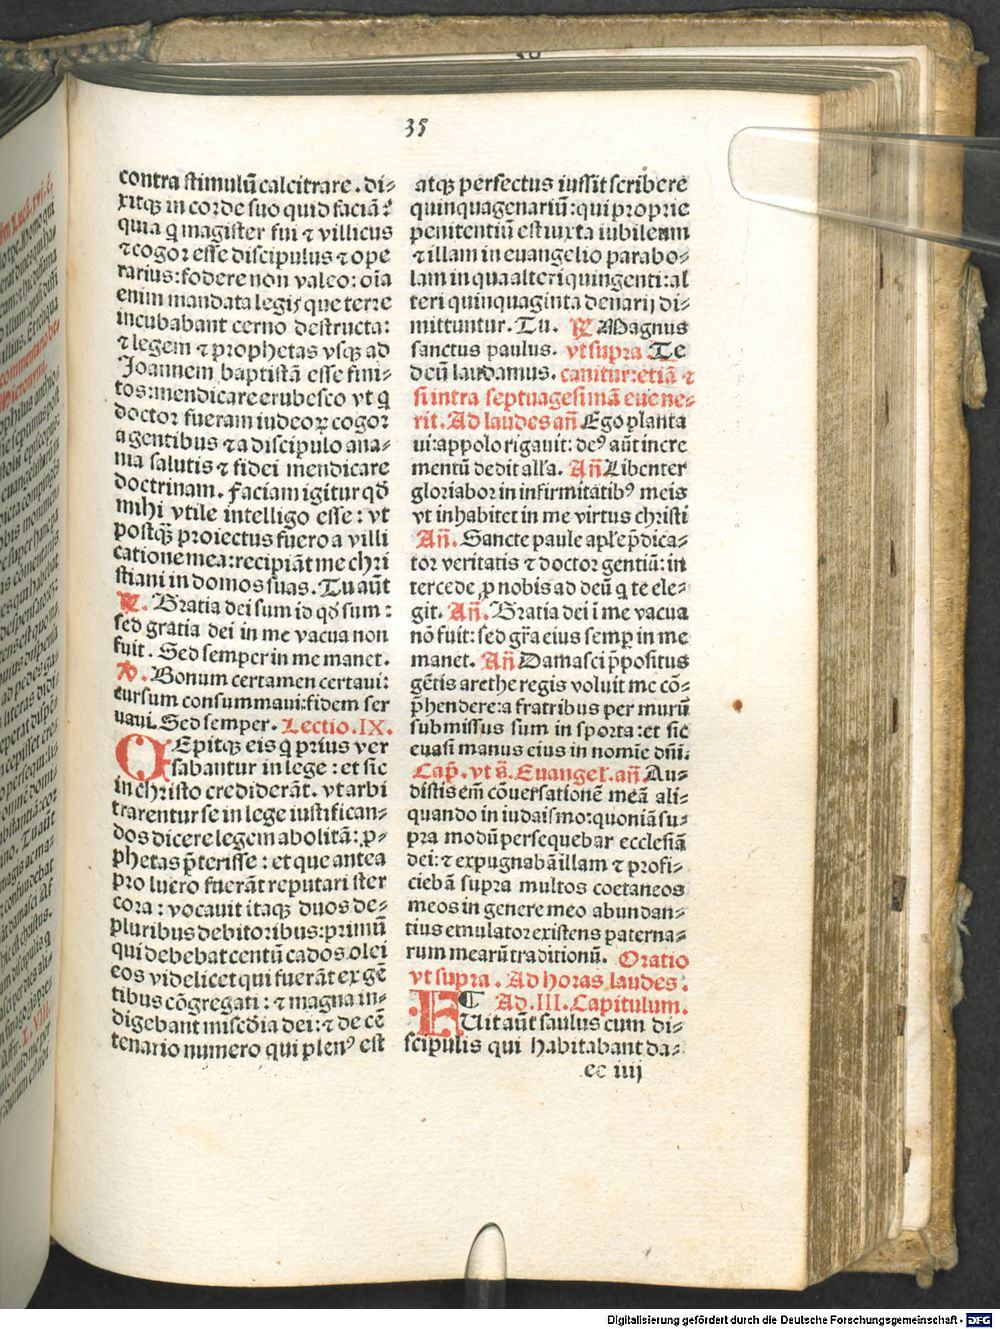 35
contra stimulū calcitrare. di⸗
xitqꝫ in corde suo quid faciā?
quia q̄ magister fui ⁊ villicus
⁊ cogor esse discipulus ⁊ ope
rarius: fodere non valeo: oīa
enim mandata legis que terre
incubabant cerno destructa:
⁊ legem ⁊ prophetas vsqꝫ ad
Joannem baptistā esse fini⸗
tos: mendicare erubesco vt q̄
doctor fueram iudeoꝝ cogor
a gentibus ⁊ a discipulo ana⸗
nia salutis ⁊ fidei mendicare
doctrinam. faciam igitur qd̄
mihi vtile intelligo esse: vt
postqꝫ̄ proiectus fuero a villi
catione mea: recipiāt me chri
stiani in domos suas. Tu aūt
℟. Gratia dei sum id qd̄ sum:
sed gratia dei in me vacua non
fuit. Sed semper in me manet.
℣. Bonum certamen certaui:
cursum consummaui: fidem ser
uaui. Sed semper. Lectio. IX.
CEpitqꝫ eis q̄ prius ver
sabantur in lege: et sic
in christo crediderāt. vt arbi
trarentur se in lege iustifican⸗
dos dicere legem abolitā: ꝓ⸗
phetas p̄terisse: et que antea
pro lucro fuerāt reputari ster
cora: vocauit itaqꝫ duos de⸗
pluribus debitoribus: primū
qui debebat centū cados olei
eos videlicet qui fuerāt ex gē
tibus cōgregati: ⁊ magna in⸗
digebant misc̄dia dei: ⁊ de cē
tenario numero qui plenꝰ est
atqꝫ perfectus iussit scribere
quinquagenariū: qui proprie
penitentiū est iuxta iubileum
⁊ illam in euangelio parabo⸗
lam in qua alteri quingenti: al
teri quinquaginta denarij di⸗
mittuntur. Tu. ℟ Magnus
sanctus paulus. vt supra Te
deū laudamus. canitur: etiā ⁊
si intra septuagesimā euene⸗
rit. Ad laudes an̄ Ego planta
ui: appolo rigauit: deꝰ aūt incre
mentū dedit all'a. An̄ Libenter
gloriabor in infirmitatibꝰ meis
vt inhabitet in me virtus christi
An̄. Sancte paule apl'e p̄dica⸗
tor veritatis ⁊ doctor gentiū: in
tercede ꝓ nobis ad deū q̄ te ele⸗
git. An̄. Gratia dei ī me vacua
nō fuit: sed gr̄a eius semꝑ in me
manet. An̄ Damasci p̄positus
gētis arethe regis voluit me cō⸗
p̄hendere: a fratribus per murū
submissus sum in sporta: et sic
euasi manus eius in nomīe dn̄i.
Cap̄. vt s̄. Euangeł. an̄ Au⸗
distis em̄ cōuersationē meā ali⸗
quando in iudaismo: quoniā su⸗
pra modū persequebar ecclesiā
dei: ⁊ expugnabā illam ⁊ profi⸗
ciebā supra multos coetaneos
meos in genere meo abundan⸗
tius emulator existens paterna⸗
rum mearū traditionū. Oratio
vt supra. Ad horas laudes.
Ad. III. Capitulum.
FUit aūt saulus cum di⸗
scipulis qui habitabant da⸗
ec iiij
Digitalisierung gefördert durch die Deutsche Forschungsgemeinschaft - DFG